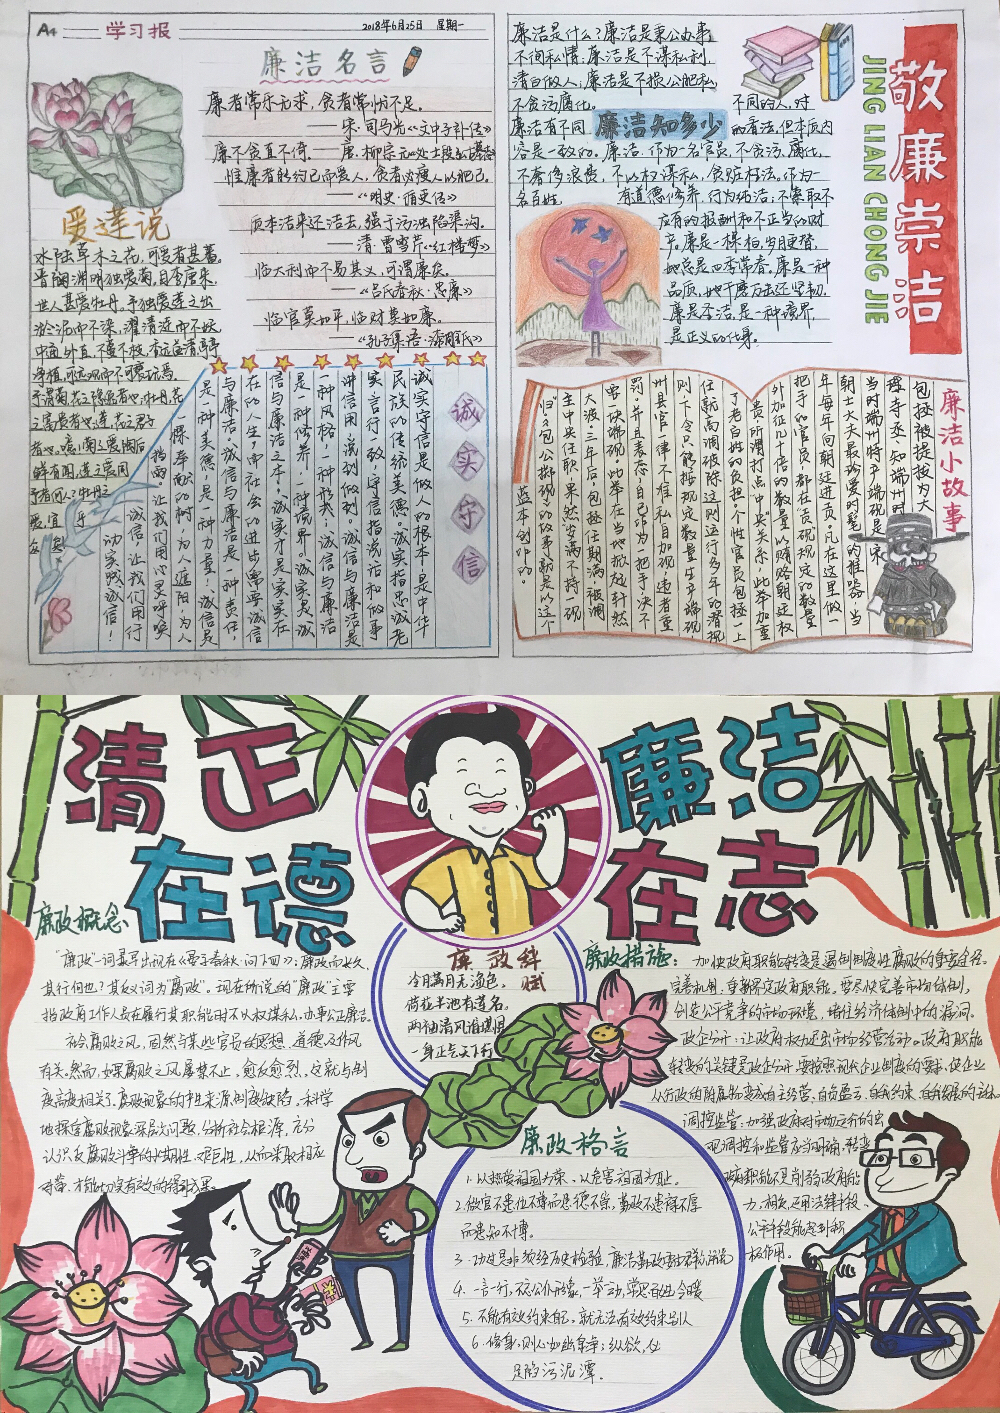 A4
学习报
2018年6月25日 星期一
廉洁名言
廉者常乐无求，贪者常忧不足。
——宋·司马光《文中子补传》
廉不贪直不倚。——唐·柳宗元
惟廉者能约己而爱人，贪者必瘦人以肥己。
——《明史·循吏传》
质本洁来还洁去，强于污淖陷渠沟。
——清·曹雪芹《红楼梦》
临大利而不易其义，可谓廉矣。
——《吕氏春秋·忠廉》
临官莫如平，临财莫如廉。
——《孔子集语·
爱莲说
水陆草木之花，可爱者甚蕃。
晋陶渊明独爱菊，自李唐来，
世人甚爱牡丹，予独爱莲之出
淤泥而不染，濯清涟而不妖，
中通外直，不蔓不枝，香远益清，亭亭
净植，可远观而不可亵玩焉。
予谓菊，花之隐逸者也，牡丹，花
之富贵者也，莲，花之君子
者也。噫！菊之爱，陶后
鲜有闻，莲之爱，同
予者何人？牡丹之
爱，宜乎
众矣
诚实守信
诚实守信是做人的根本，是中华
民族的传统美德。诚实指忠诚老
实，言行一致，守信指说话和做事
讲信用，说到做到。诚信与廉洁是
一种风格，一种形象；诚信与廉洁
是一种修养，一种境界。诚实是诚
信与廉洁之本，诚实才是实实在
在的人生，而社会的进步需要诚信
与廉洁。诚信与廉洁是一种责任，
是一种美德，是一种力量！诚信是
一棵奉献的树，为人遮阳，为人
挡雨，让我们用心灵呼唤
诚信，让我们用行
动实践诚信！
廉洁是什么？廉洁是秉公办事
不徇私情，廉洁是不谋私利，
清白做人，廉洁是不损公肥私，
不贪污腐化。不同的人，对
廉洁有不同的看法，但本质内
廉洁知多少
容是一致的。廉洁，作为一名官员，不贪污、腐化，
不奢侈浪费，不以权谋私，贪赃枉法。作为一
名百姓，有道德修养，行为纯洁；不索取不
应有的报酬和不正当的财
产。廉是一棵柏，岁月更替，
她总是四季常春，廉是一种
品质，她千磨万击还坚韧。
廉是圣洁，是一种境界，
是正义的化身。
敬廉崇洁
JING LIAN CHONG JIE
廉洁小故事
包拯被提拔为大
理寺丞，知端州时，
当时端州特产端砚是宋
朝士大夫最珍爱的笔
年每年向朝廷进贡。凡在这里做一
把手的官员，都在贡砚规定的数量
外加征几十倍的数量以贿赂朝廷权
贵，所谓打点中央关系，此举加重
了老百姓的负担。
任就高调破除这
则，下令只能按规定数量生产端砚，
州县官吏一律不准私自加码，违者重
罚，并且表态：自己作为一把手，决不
要一块端砚，此举在当地掀起轩然
大波。三年后，包拯任期满，被调
至中央任职，果然岁满不持一砚
归。包公掷砚的故事就是以这个
蓝本创作的。
清正
在德
廉洁
在志
廉政概念
“廉政”一词最早出现在《晏子春秋·问下四》：廉政而长久，
其行何也？其反义词为腐败”。现在所说的“廉政”主要
指政府工作人员在履行其职能时不以权谋私，办事公正廉洁。
社会腐败之风，固然与某些官员的思想、道德及作风
有关。然而，如果腐败之风屡禁不止，愈反愈烈，这就与制
度高度相关了。腐败现象的
地探究腐败现象深层次问题，分析社会根源，充分
认识反腐败斗争的长期性、艰巨性，从而采取相应
对策，才能
廉政辞赋
今月满月无浊色，
荷花半池有莲名。
两袖清风谁堪恨
一身正气天下行
廉政措施：
加快政府职能转变是遏制制度性腐败的重要途径。
完善机制，重新界定政府职能。要尽快完善市场体制，
创造公平竞争的市场环境，堵住经济体制中的漏洞。
政企分开：让政府权力退出市场经营活动。政府职能
转变的关键是政企分开，要按照现代企业制度的要求，使企业
从行政的附属物变成自主经营、自负盈亏、自我约束、自我发展的
调控监管：加强政府对市场经济的宏
观调控和监管应当明确，转变
政府职能不是削弱政府能
力，相反，运用法律手段、
公平手段能起到积
极作用。
廉政格言
1. 以热爱祖国为荣、以危害祖国为耻。
2. 做官不患位不尊而患德不崇，勤政不患禄不厚
而患知不博。
3. 功过是非须经历史检验，廉洁勤政要由群众评说
4. 一言一行，不忘公仆形象，一举一动，常思百姓冷暖
5. 不能有效约束自己，就无法有效约束别人
6. 修身，则人如幽兰香；纵欲，必
是陷污泥潭。